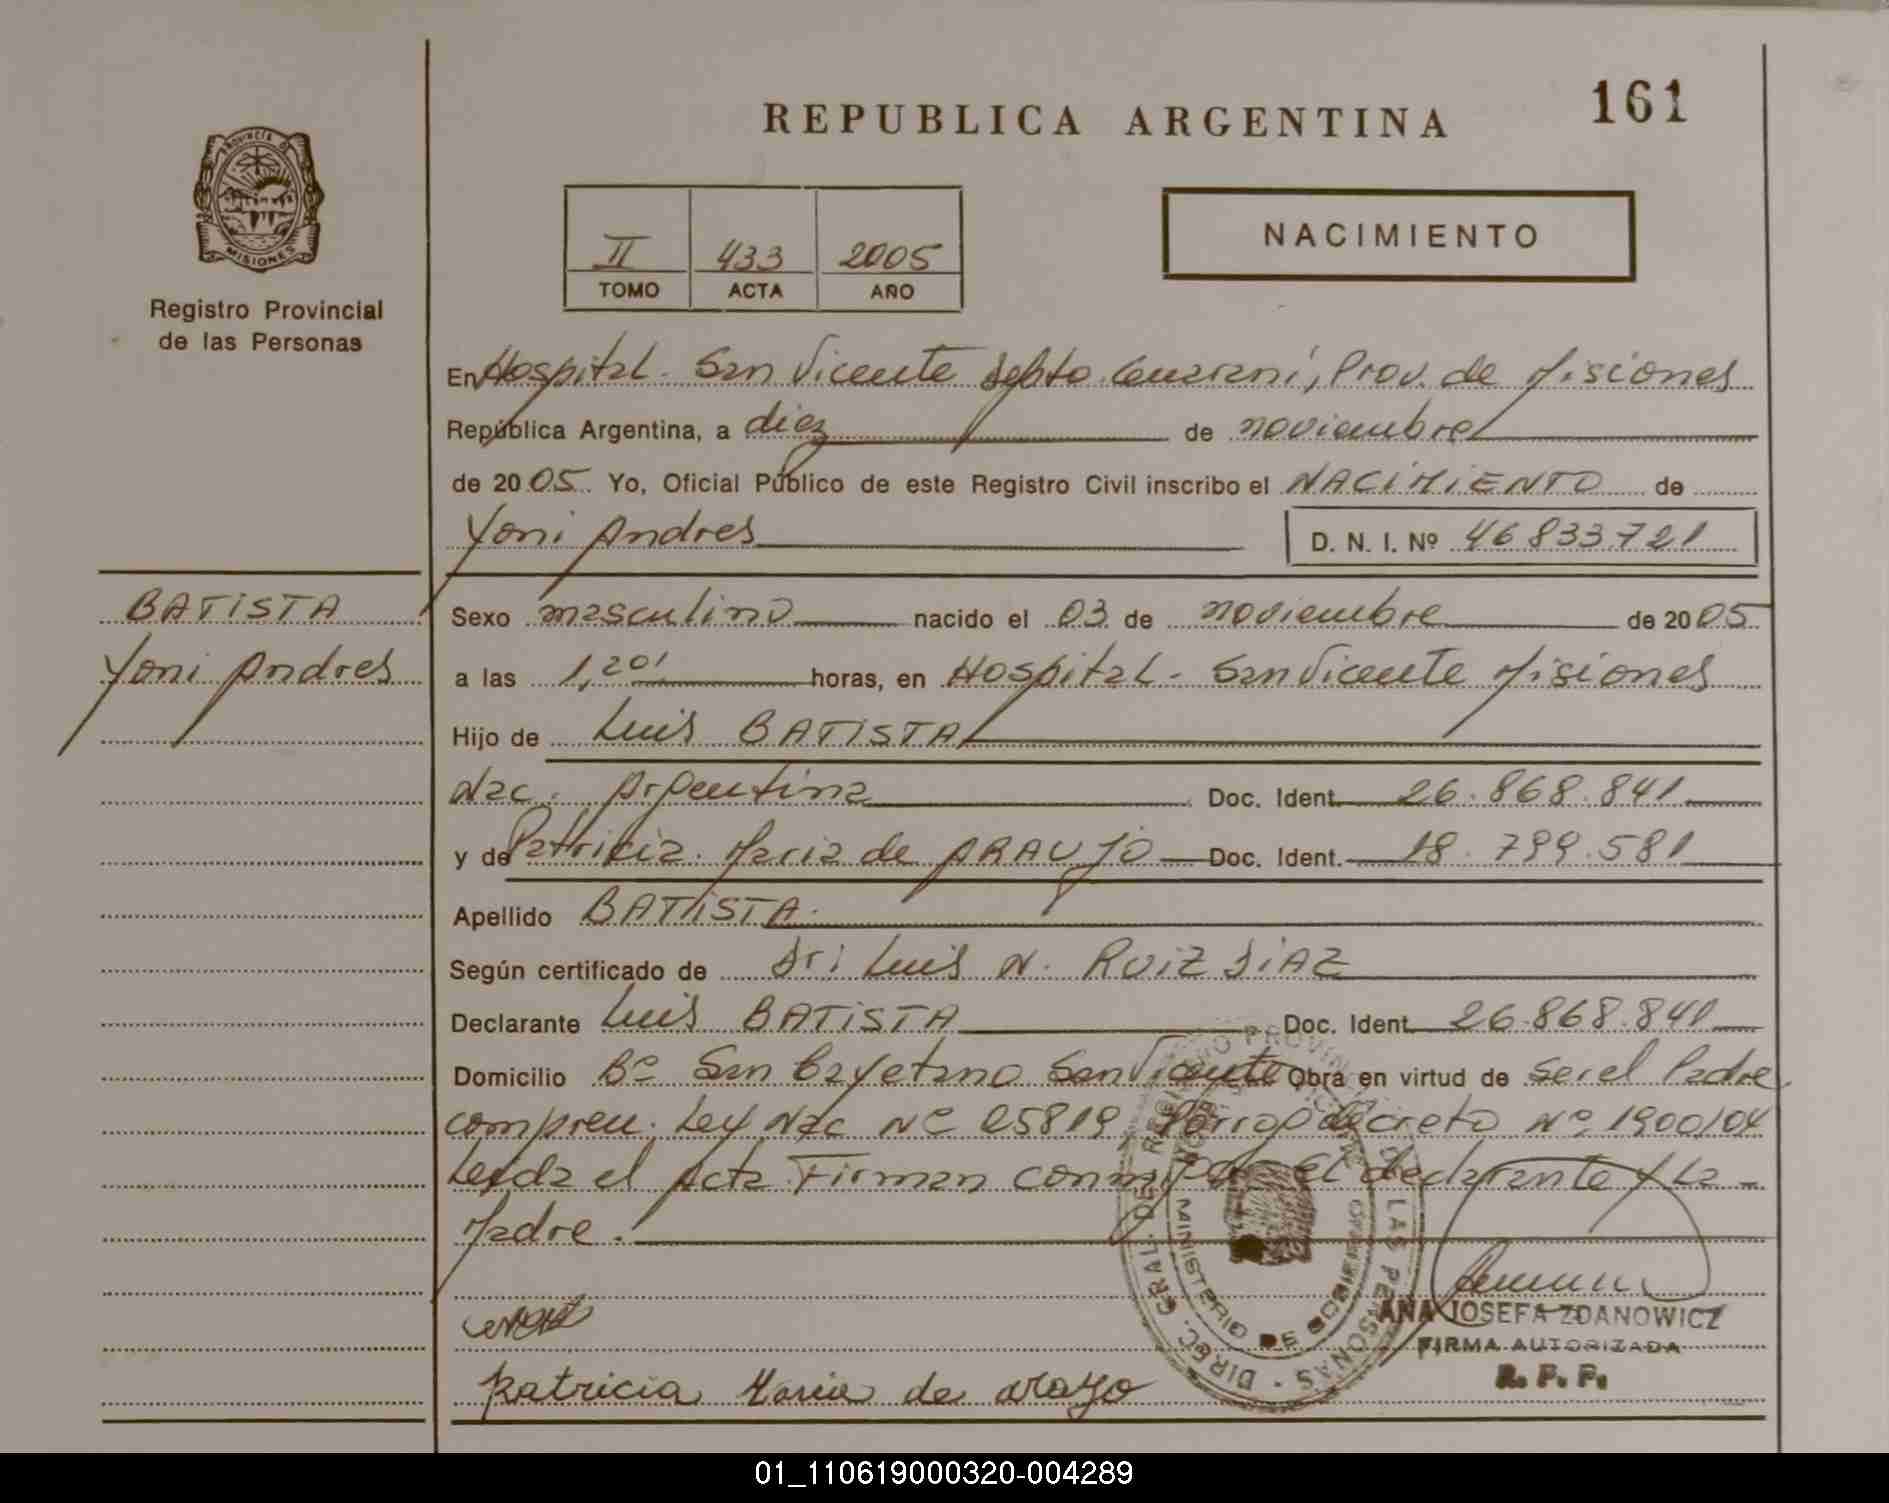 REPUBLICA ARGENTINA
161
PROVINCIA DE
MISIONES
Registro Provincial
de las Personas
II 433 2005
TOMO ACTA AÑO
NACIMIENTO
En Hospital - San Vicente Depto. Guaraní, Prov. de Misiones
República Argentina, a diez de noviembre
de 2005. Yo, Oficial Público de este Registro Civil inscribo el NACIMIENTO de
Yoni Andres D. N. I. Nº 46833721
BATISTA
Yoni Andres
Sexo masculino nacido el 03 de noviembre de 2005
a las 1,20' horas, en Hospital - San Vicente Misiones
Hijo de Luis BATISTA
Nac. Argentina Doc. Ident. 26.868.841
y de Patricia Maria de ARAUJO Doc. Ident. 18.799.581
Apellido BATISTA.
Según certificado de Dr: Luis N. RUIZ DIAZ
Declarante Luis BATISTA Doc. Ident. 26.868.841
Domicilio Bº San Cayetano San Vicente Obra en virtud de ser el Padre
compren. Ley Nac Nº 25819, Prorrog decreto Nº 1900/04
Leída el Acta Firman conmigo el declarante y La -
Madre.
DIREC. GRAL. DE REGISTRO PROVINCIAL DE LAS PERSONAS
MINISTERIO DE GOBIERNO
ANA JOSEFA ZDANOWICZ
FIRMA AUTORIZADA
R. P. P.
Patricia Maria de Arayo
01_110619000320-004289